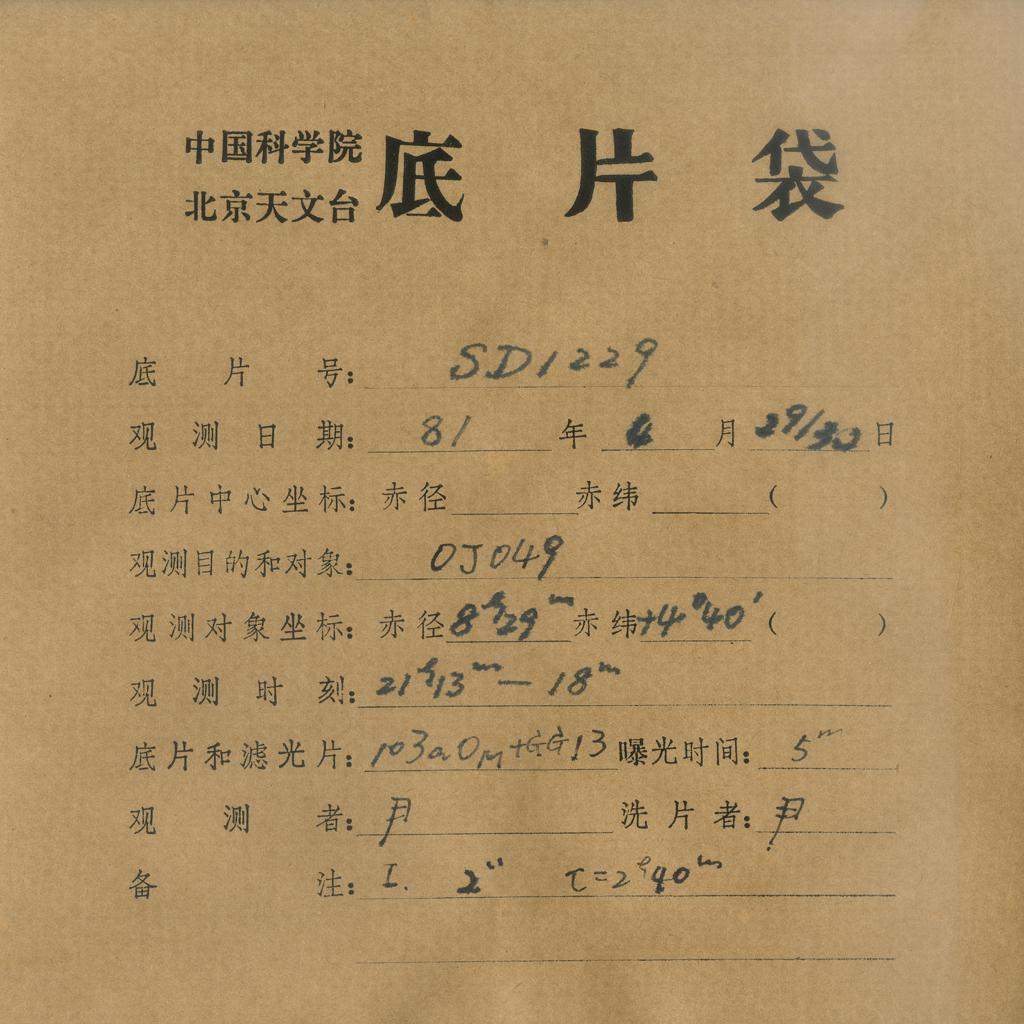 中国科学院
北京天文台
底片袋
底片号: SD1229
观测日期: 81 年 4 月 29/30 日
底片中心坐标: 赤径 赤纬 ( )
观测目的和对象: OJ049
观测对象坐标: 赤径 8ʰ29ᵐ 赤纬 +4°40′ ( )
观测时刻: 21ʰ13ᵐ — 18ᵐ
底片和滤光片: 103aO M+GG13 曝光时间: 5ᵐ
观测者: 尹 洗片者: 尹
备注: I. 2" τ=2ʰ40ᵐ